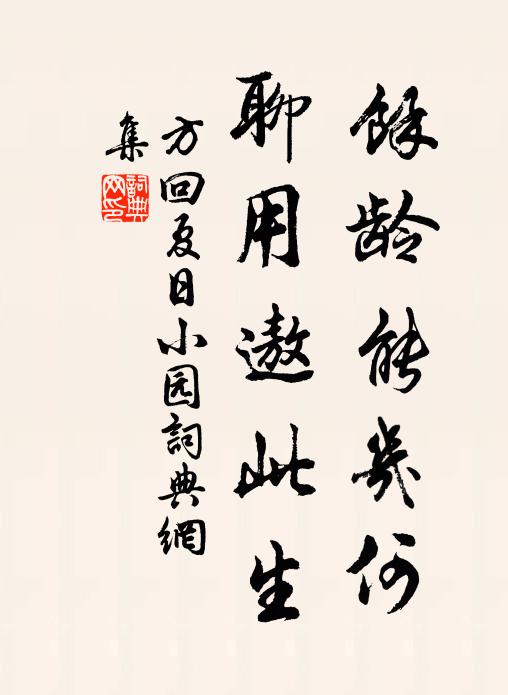 餘齡能幾何
聊用遨此生
方回夏日小园詞典網
集
詞典網印